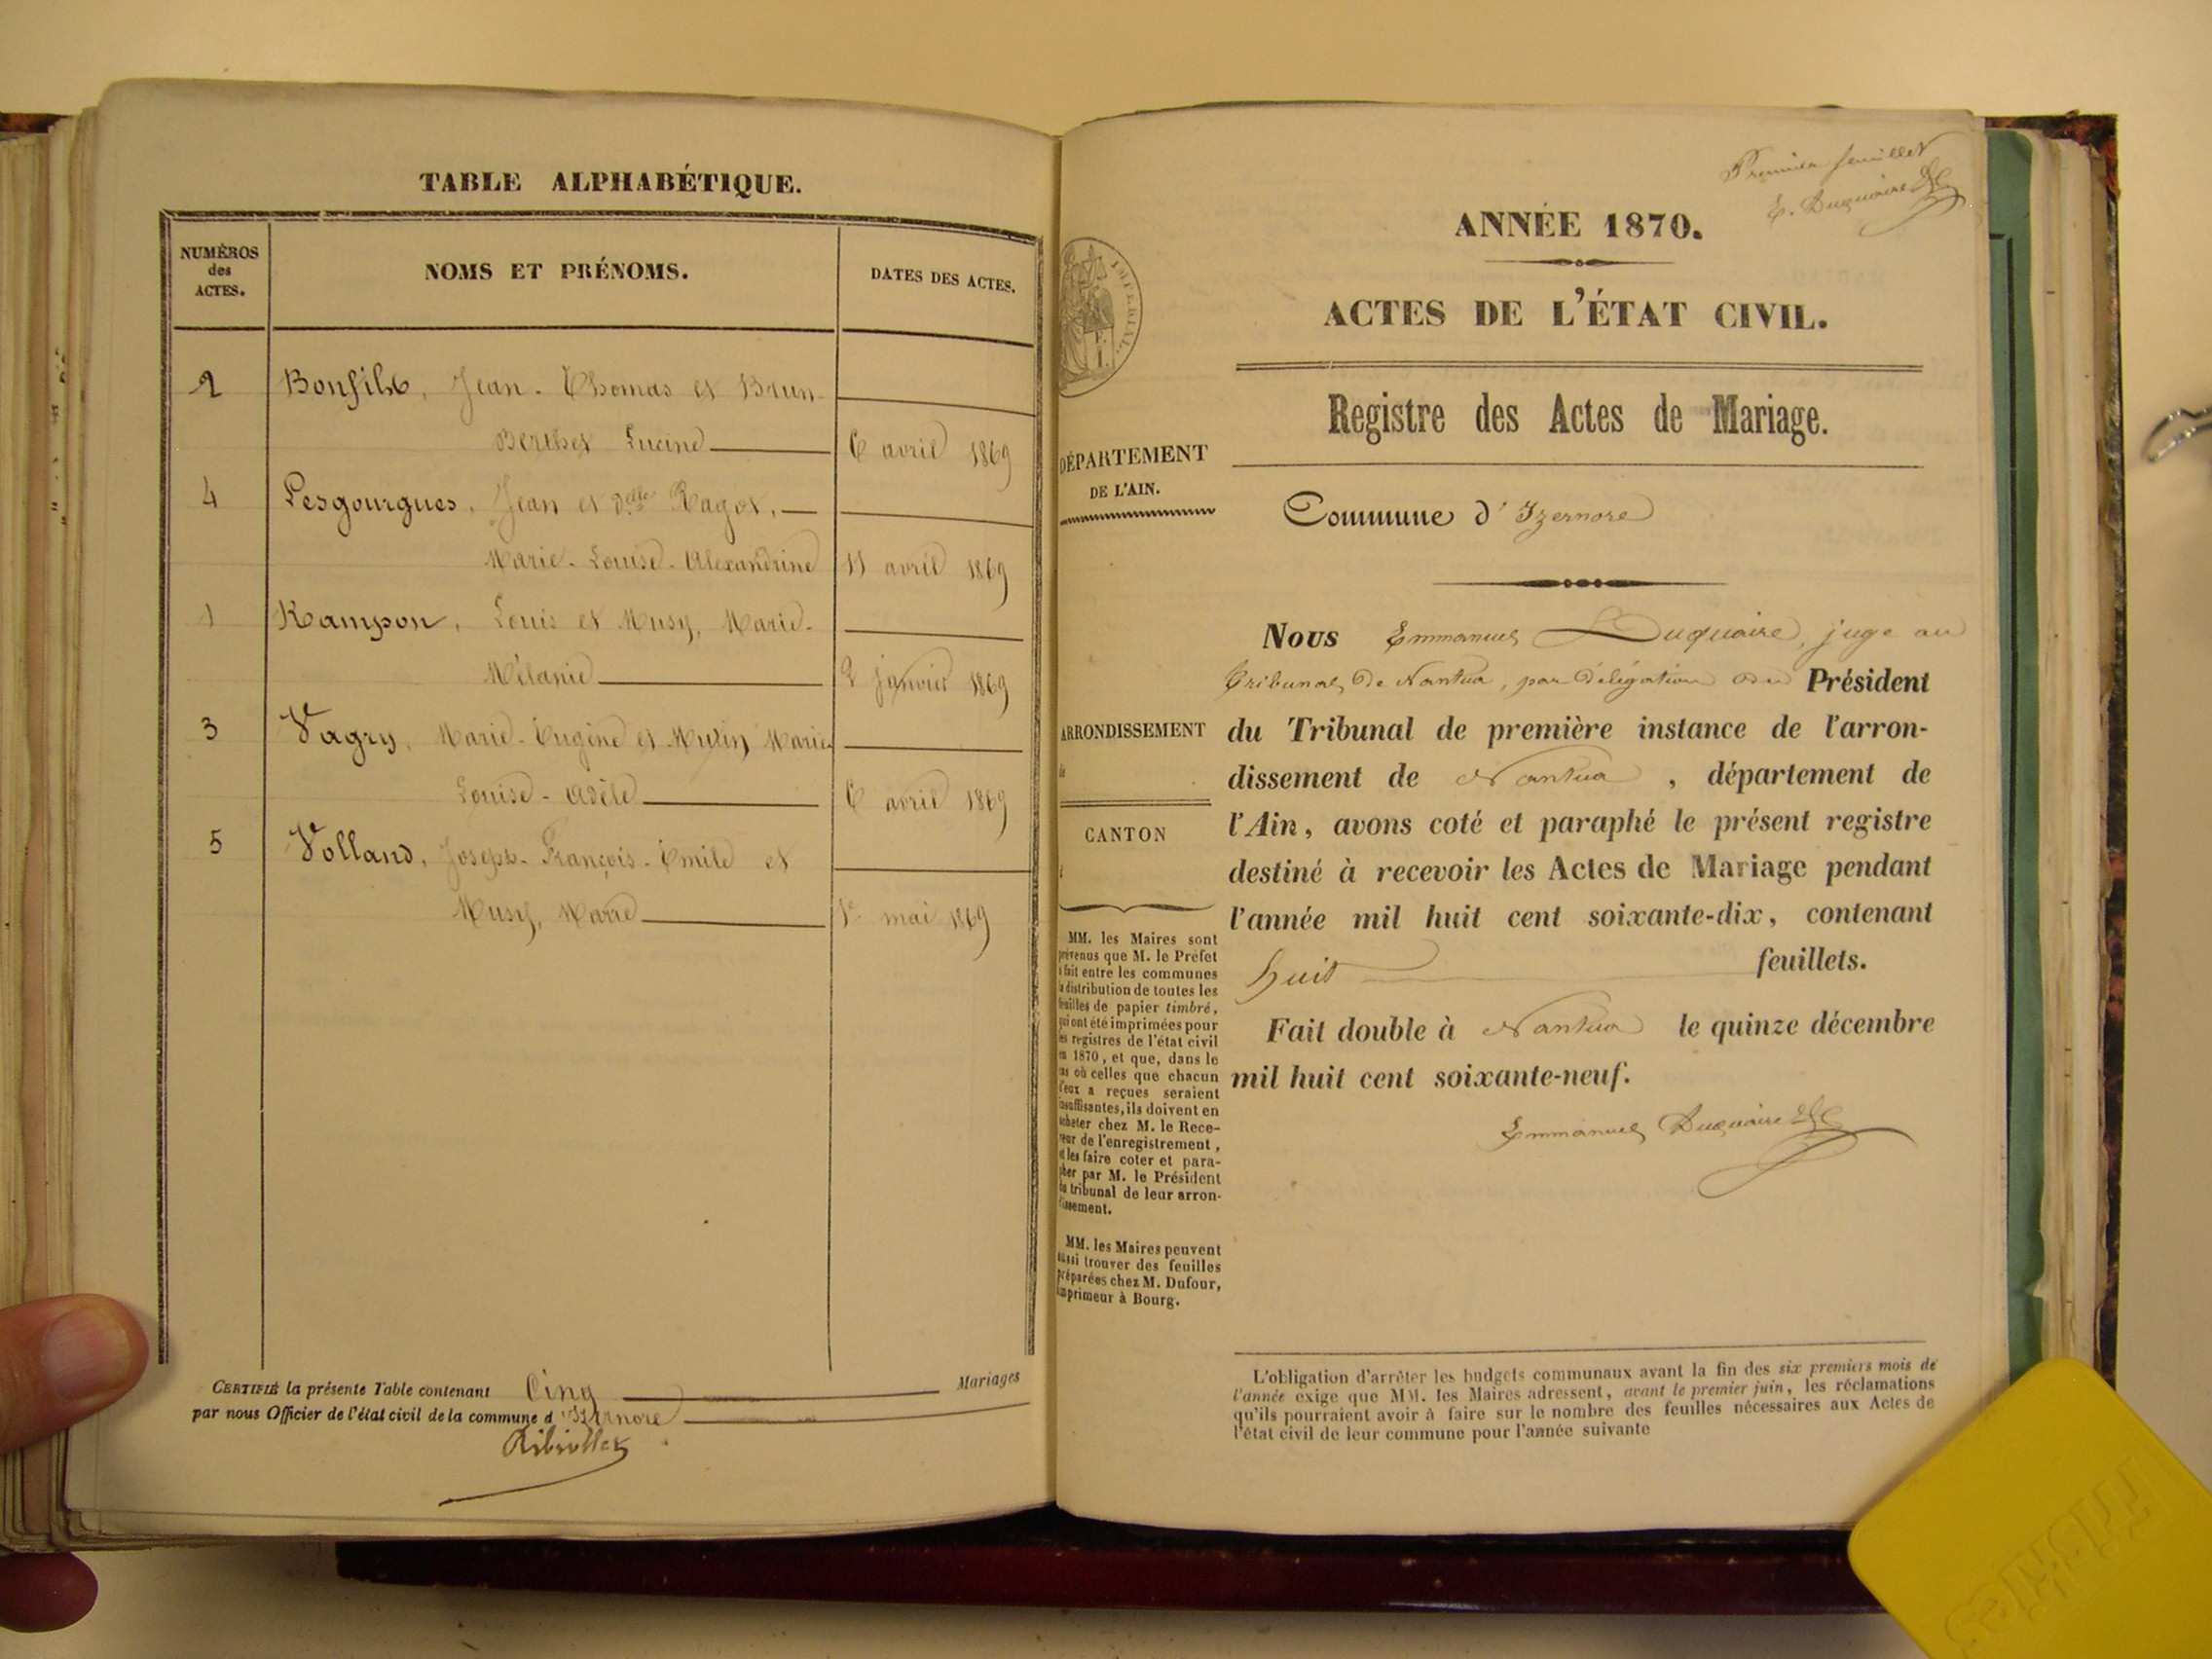 TABLE ALPHABÉTIQUE.
NUMÉROS
des
ACTES.
NOMS ET PRÉNOMS.
DATES DES ACTES.
2 Bonfils, Jean-Thomas et Brun-
Berthet Lucine 6 avril 1869
4 Lesgourgues, Jean et dlle Ragot,
Marie-Louise-Alexandrine 11 avril 1869
1 Rampon, Louis et Musy, Marie-
Mélanie 2 janvier 1869
3 Vagry, Marie-Eugène et Marie
Louise-Adèle 6 avril 1869
5 Volland, Joseph-François-Emile et
Musy, Marie 1er mai 1869
CERTIFIÉ la présente Table contenant Cinq Mariages
par nous Officier de l'état civil de la commune d'Izernore
Premier feuillet
E. Duquaire
ANNÉE 1870.
ACTES DE L'ÉTAT CIVIL.
IMPÉRIAL.
Registre des Actes de Mariage.
DÉPARTEMENT
DE L'AIN.
Commune d'Izernore
Nous Emmanuel Duquaire, juge au
Tribunal de Nantua, par délégation du Président
ARRONDISSEMENT
du Tribunal de première instance de l'arron-
dissement de Nantua, département de
CANTON
l'Ain, avons coté et paraphé le présent registre
destiné à recevoir les Actes de Mariage pendant
l'année mil huit cent soixante-dix, contenant
huit feuillets.
Fait double à Nantua le quinze décembre
mil huit cent soixante-neuf.
Emmanuel Duquaire
MM. les Maires sont
prévenus que M. le Préfet
a fait entre les communes
la distribution de toutes les
feuilles de papier timbré,
qui ont été imprimées pour
les registres de l'état civil
en 1870, et que, dans le
cas où celles que chacun
d'eux a reçues seraient
insuffisantes, ils doivent en
acheter chez M. le Rece-
veur de l'enregistrement,
et les faire coter et para-
pher par M. le Président
du tribunal de leur arron-
dissement.
MM. les Maires peuvent
aussi trouver des feuilles
préparées chez M. Dufour,
imprimeur à Bourg.
L'obligation d'arrêter les budgets communaux avant la fin des six premiers mois de
l'année exige que MM. les Maires adressent, avant le premier juin, les réclamations
qu'ils pourraient avoir à faire sur le nombre des feuilles nécessaires aux Actes de
l'état civil de leur commune pour l'année suivante